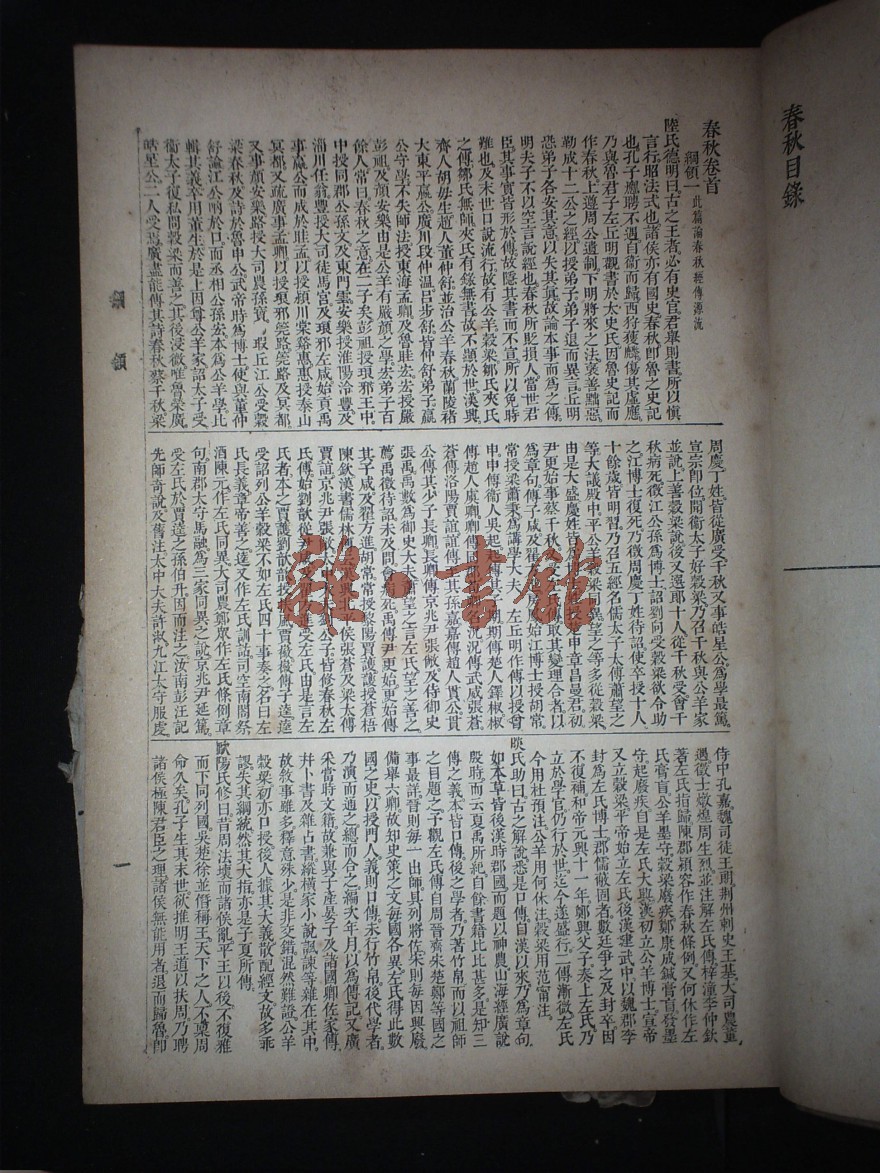 春秋目錄
春秋卷首
綱領一 此篇論春秋經傳源流
陸氏德明曰古之王者必有史官君舉則書所以愼
言行昭法式也諸侯亦有國史春秋卽魯之史記
也孔子應聘不遇自衞而歸西狩獲麟傷其虛應
乃與魯君子左丘明觀書於太史氏因魯史記而
作春秋上遵周公遺制下明將來之法褒善黜惡
勒成十二公之經以授弟子弟子退而異言丘明
恐弟子各安其意以失其眞故論本事而爲之傳
明夫子不以空言說經也春秋所貶損人當世君
臣其事實皆形於傳故隱其書而不宣所以免時
難也及末世口說流行故有公羊穀梁鄒氏夾氏
之傳鄒氏無師夾氏有錄無書故不顯於世漢興
齊人胡毋生趙人董仲舒並治公羊春秋蘭陵褚
大東平嬴公廣川段仲溫呂步舒皆仲舒弟子嬴
公守學不失師法授東海孟卿及魯眭宏宏授嚴
彭祖及顏安樂由是公羊有嚴顏之學宏弟子百
餘人常曰春秋之意在二子矣彭祖授琅邪王中
中授同郡公孫文及東門雲安樂授淮陽泠豐及
淄川任翁豐授大司徒馬宮及琅邪左咸始貢禹
事嬴公而成於眭孟以授潁川棠谿惠惠授泰山
冥都又疏廣事孟卿以授琅邪筦路筦路及冥都
又事顏安樂路授大司農孫寶 瑕丘江公受穀
梁春秋及詩於魯申公武帝時爲博士使與董仲
舒論江公吶於口而丞相公孫宏本爲公羊學比
輯其義卒用董生於是上因尊公羊家詔太子受
衞太子復私問穀梁而善之其後浸微唯魯榮廣
皓星公二人受焉廣盡能傳其詩春秋蔡千秋梁
周慶丁姓皆從廣受千秋又事皓星公爲學最篤
宣帝卽位聞衞太子好穀梁乃召千秋與公羊家
並說上善穀梁說後又選郎十人從千秋受會千
秋病死徵江公孫爲博士詔劉向受穀梁欲令助
之江博士復死乃徵周慶丁姓待詔使卒授十人
十餘歲皆明習乃召五經名儒太子太傅蕭望之
等大議殿中平公羊穀梁同異望之等多從穀梁
由是大盛慶姓皆
申章昌曼君初
尹更始事蔡千秋
取其變理合者以
爲章句傳子咸及翟
始江博士授胡常
常授梁蕭秉爲講學大夫 左丘明作傳以授曾
申申傳衞人吳起
期期傳楚人鐸椒椒
傳趙人虞卿卿傳
況況傳武威張蒼
蒼傳洛陽賈誼誼傳至其孫嘉嘉傳趙人貫公貫
公傳其少子長卿長卿傳京兆尹張敞及侍御史
張禹禹數爲御史大夫蕭望之言左氏望之善之
薦禹徵待詔未及問會病死禹傳尹更始更始傳
其子咸及翟方進胡常常授黎陽賈護護授蒼梧
陳欽漢書儒林傳云漢興北平侯張蒼及梁太傅
賈誼京兆尹張敞太中大夫劉公子皆修春秋左
氏傳始劉歆從尹咸及翟方進受左氏由是言左
氏者本之賈護劉歆歆授扶風賈徽徽傳子逵逵
受詔列公羊穀梁不如左氏四十事奏之名曰左
氏長義章帝善之逵又作左氏訓詁司空南閣祭
酒陳元作左氏同異大司農鄭眾作左氏條例章
句南郡太守馬融爲三家同異之說京兆尹延篤
受左氏於賈逵之孫伯升因而注之汝南彭汪記
先師奇說及舊注太中大夫許淑九江太守服虔
侍中孔嘉魏司徒王朗荆州刺史王基大司農董
遇徵士燉煌周生烈並注解左氏傳梓潼李仲欽
著左氏指歸陳郡潁容作春秋條例又何休作左
氏膏肓公羊墨守穀梁廢疾鄭康成鍼膏肓發墨
守起廢疾自是左氏大興漢初立公羊博士宣帝
又立穀梁平帝始立左氏後漢建武中以魏郡李
封爲左氏博士郡儒蔽固者數廷爭之及封卒因
不復補和帝元興十一年鄭興父子奏上左氏乃
立於學官仍行於世迄今遂盛行二傳漸微左氏
今用杜預注公羊用何休注穀梁用范甯注
啖氏助曰古之解說悉是口傳自漢以來乃爲章句
如本草皆後漢時郡國而題以神農山海經廣說
殷時而云夏禹所紀自餘書籍比比甚多是知三
傳之義本皆口傳後之學者乃著竹帛而以祖師
之目題之予觀左氏傳自周晉齊宋楚鄭等國之
事最詳晉則每一出師具列將佐宋則每因興廢
備舉六卿故知史策之文每國各異左氏得此數
國之史以授門人義則口傳未行竹帛後代學者
乃演而通之總而合之編次年月以爲傳記又廣
采當時文籍故兼與子產晏子及諸國卿佐家傳
幷卜書及雜占書縱橫家小說諷諫等雜在其中
故敘事雖多釋意殊少是非交錯混然難證公羊
穀梁初亦口授後人據其大義散配經文故多乖
謬失其綱統然其大指亦是子夏所傳
歐陽氏修曰昔周法壞而諸侯亂平王以後不復雅
而下同列國吳楚徐並僭稱王天下之人不稟周
命久矣孔子生其末世欲推明王道以扶周乃聘
諸侯極陳君臣之理諸侯無能用者退而歸魯卽
綱領
一
雜·書館